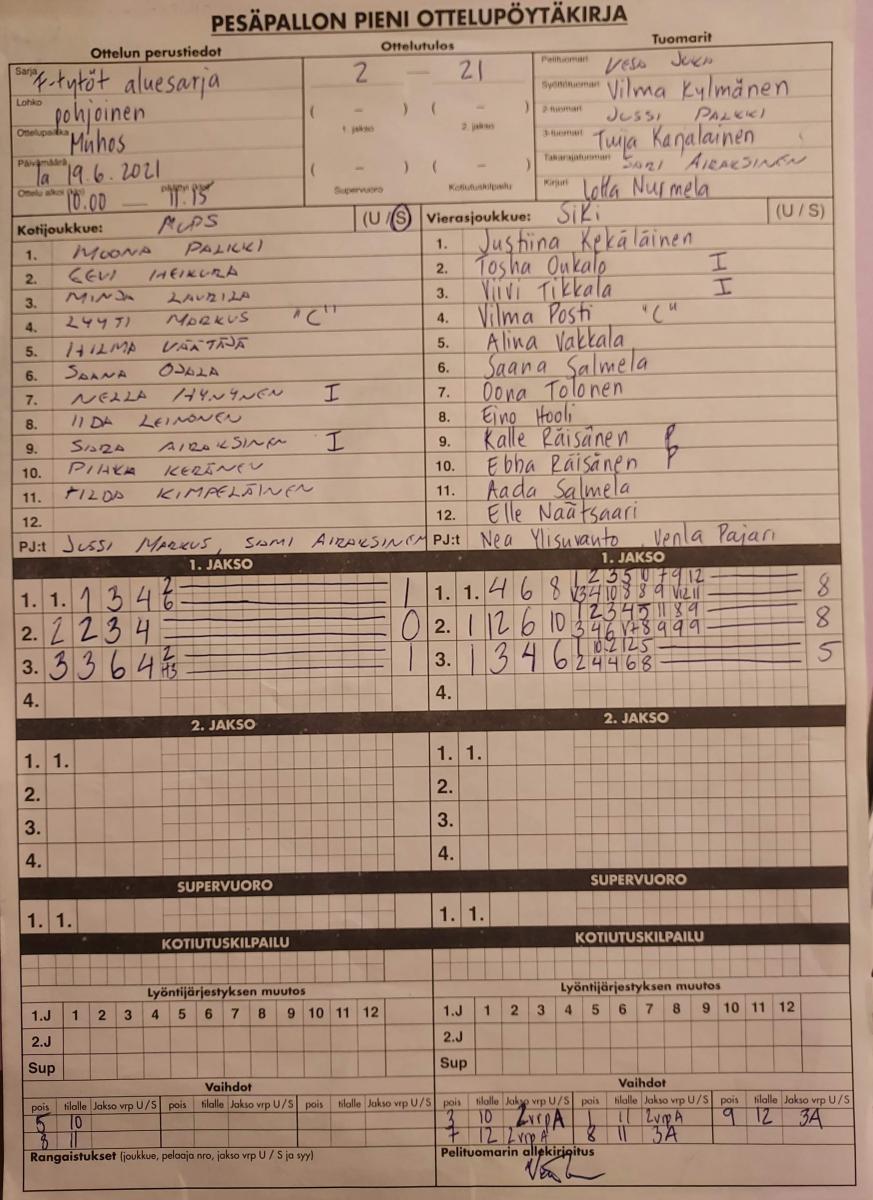 PESÄPALLON PIENI OTTELUPÖYTÄKIRJA
Ottelun perustiedot
Ottelutulos
Tuomarit
Sarja F-tytöt aluesarja
Lohko pohjoinen
Ottelupaikka Muhos
Päivämäärä la 19.6.2021
Ottelu alkoi (klo) 10.00 — päättyi (klo) 11.15
2 — 21
( – ) ( – )
1. jakso 2. jakso
( – ) ( – )
Supervuoro Kotiutuskilpailu
Pelituomari VESA
Syöttötuomari Vilma Kylmänen
2-tuomari JUSSI PALKKI
3-tuomari Tuija Karjalainen
Takarajatuomari SAMI AIRAKSINEN
Kirjuri Lotta Nurmela
Kotijoukkue: MUPS (U / S)
1. MOONA PALKKI
2. EEVI HEIKURA
3. MINJA LAURILA
4. LYYTI MARKUS "C"
5. HILMA VÄÄTÄJÄ
6. SAANA OJALA
7. NELLA HYNYNEN I
8. IIDA LEINONEN
9. SARA AIRAKSINEN I
10. PIHKA KERÄNEN
11. TILDA KIMPELÄINEN
12.
PJ:t JUSSI MARKUS, SAMI AIRAKSINEN
Vierasjoukkue: SiKi (U / S)
1. Justiina Kekäläinen
2. Tosha Oukalo I
3. Viivi Tikkala I
4. Vilma Posti "C"
5. Alina Vakkala
6. Saana Salmela
7. Oona Tolonen
8. Eino Hooli
9. Kalle Räisänen P
10. Ebba Räisänen P
11. Aada Salmela
12. Elle Näätsaari
PJ:t Nea Ylisuvanto, Venla Pajari
1. JAKSO
1. 1. 1 3 4 2 6 1
2. 2 2 3 4 0
3. 3 3 6 4 2 1
4.
1. JAKSO
1. 1. 4 6 8 8
2. 1 12 6 10 1 2 3 4 5 11 8 9 8
3. 1 3 4 6 1 10 2 12 5 2 4 4 6 8 5
4.
2. JAKSO
1. 1.
2.
3.
4.
2. JAKSO
1. 1.
2.
3.
4.
SUPERVUORO
1. 1.
SUPERVUORO
1. 1.
KOTIUTUSKILPAILU
KOTIUTUSKILPAILU
Lyöntijärjestyksen muutos
1.J 1 2 3 4 5 6 7 8 9 10 11 12
2.J
Sup
Lyöntijärjestyksen muutos
1.J 1 2 3 4 5 6 7 8 9 10 11 12
2.J
Sup
Vaihdot
pois tilalle Jakso vrp U / S pois tilalle Jakso vrp U / S pois tilalle Jakso vrp U / S
5 10
8 11
Vaihdot
pois tilalle Jakso vrp U / S pois tilalle Jakso vrp U / S pois tilalle Jakso vrp U / S
3 10 2vrpA 1 11 2vrpA 9 12 3A
7 12 2vrpA 8 11 3A
Rangaistukset (joukkue, pelaaja nro, jakso vrp U / S ja syy)
Pelituomarin allekirjoitus